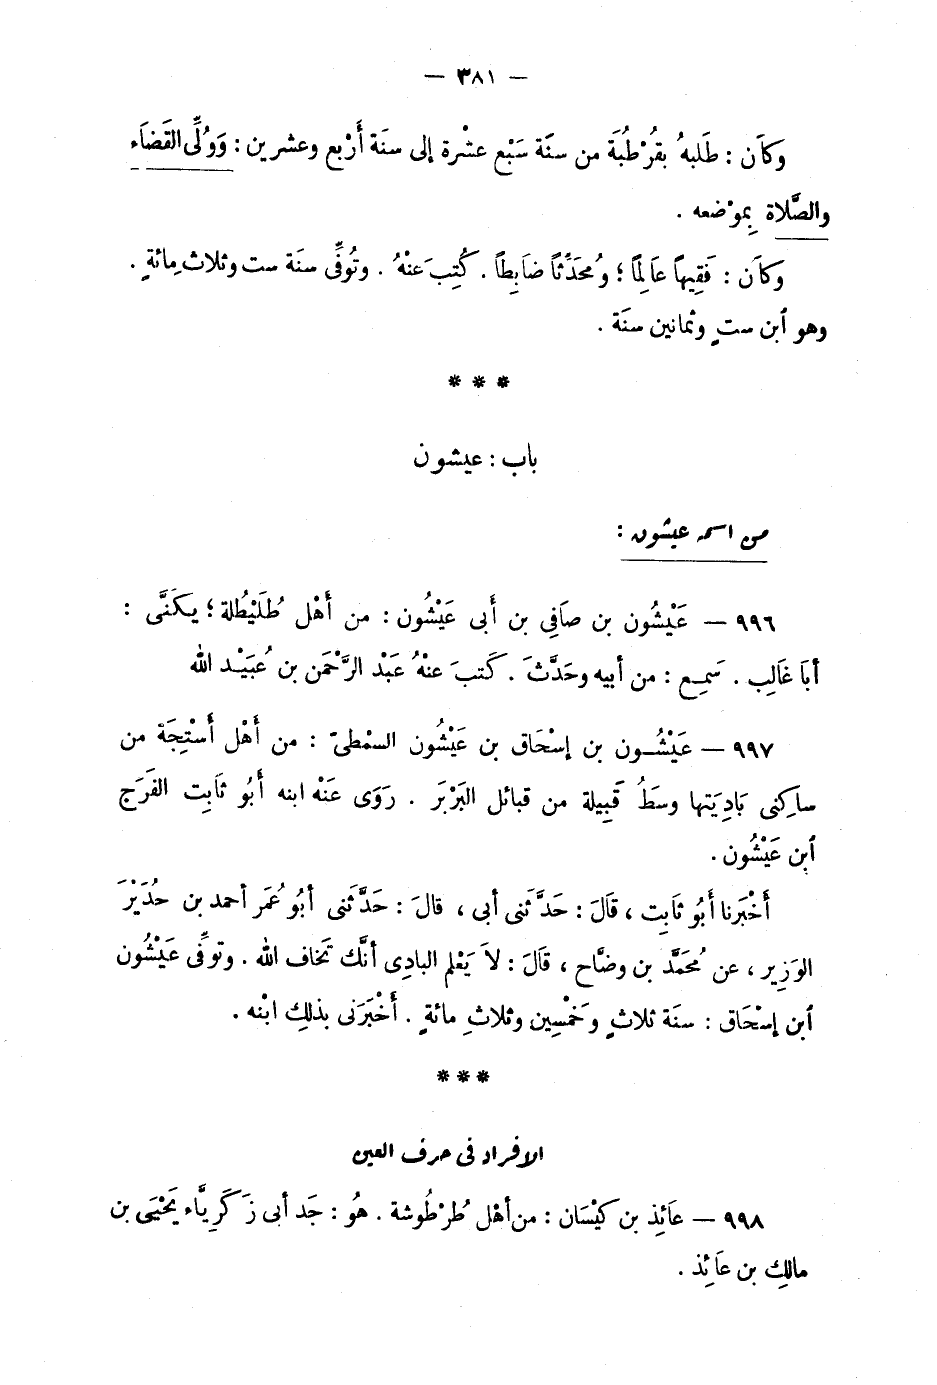 — ٣٨١ —
وكَان : طَلبهُ بقُرْطُبَة من سنَة سَبْع عشْرة إلى سنَة أَرْبع وعشرين : وَوُلِّى القَضَاء
والصَّلاة بِموْضعه .
وكَان : فَقِيهاً عَالِماً ؛ وُمحَدِّثاً ضَابِطاً . كُتِبَ عنْهُ . وتُوُفِّى سنَة ست وثلاثِمائةٍ .
وهو ٱبن ستٍ وثمانين سنَة .
* * *
باب : عيشون
من اسمه عيشون :
٩٩٦ — عَيْشُون بن صَافِى بن أَبى عَيْشُون : من أَهْل طُلَيْطُلة ؛ يكَنَّى :
أبَا غَالِب . سَمِع : من أبيه وحَدَّثَ . كَتبَ عنْهُ عَبْد الرَّحْمَن بن عُبَيْد الله
٩٩٧ — عَيْشُون بن إسْحَاق بن عَيْشُون السمْطىّ : من أَهْل أَسْتِجَة من
ساكِنى بَادِيَتها وسَطُ قَبِيلة من قبائل البَرْبَر . رَوَى عَنْه ابنه أَبُو ثَابِت الفَرَج
ٱبن عَيْشُون .
أَخْبَرنا أَبُو ثَابِت ، قَالَ : حَدَّثَنى أبى ، قالَ : حَدَّثَنى أبُو عُمَر أحمد بن حُدَيْرَ
الوَزِير ، عن مُحَمَّد بن وضَّاح ، قَالَ : لاَ يَعْلم البادِى أنَّك تَخاف الله . وتوفِّى عَيْشُون
ٱبن إسْحَاق : سنَة ثلاثٍ وَخمْسِين وثلاثِ مائةٍ . أَخْبَرَنى بذلكِ ابْنه .
* * *
الافراد فى حرف العين
٩٩٨ — عَائِذ بن كَيْسَان : من أهْل طُرْطُوشة . هُو : جَد أبى زَكَرِيَّاء يَحْيَى بن
مالِك بن عَائِذ .